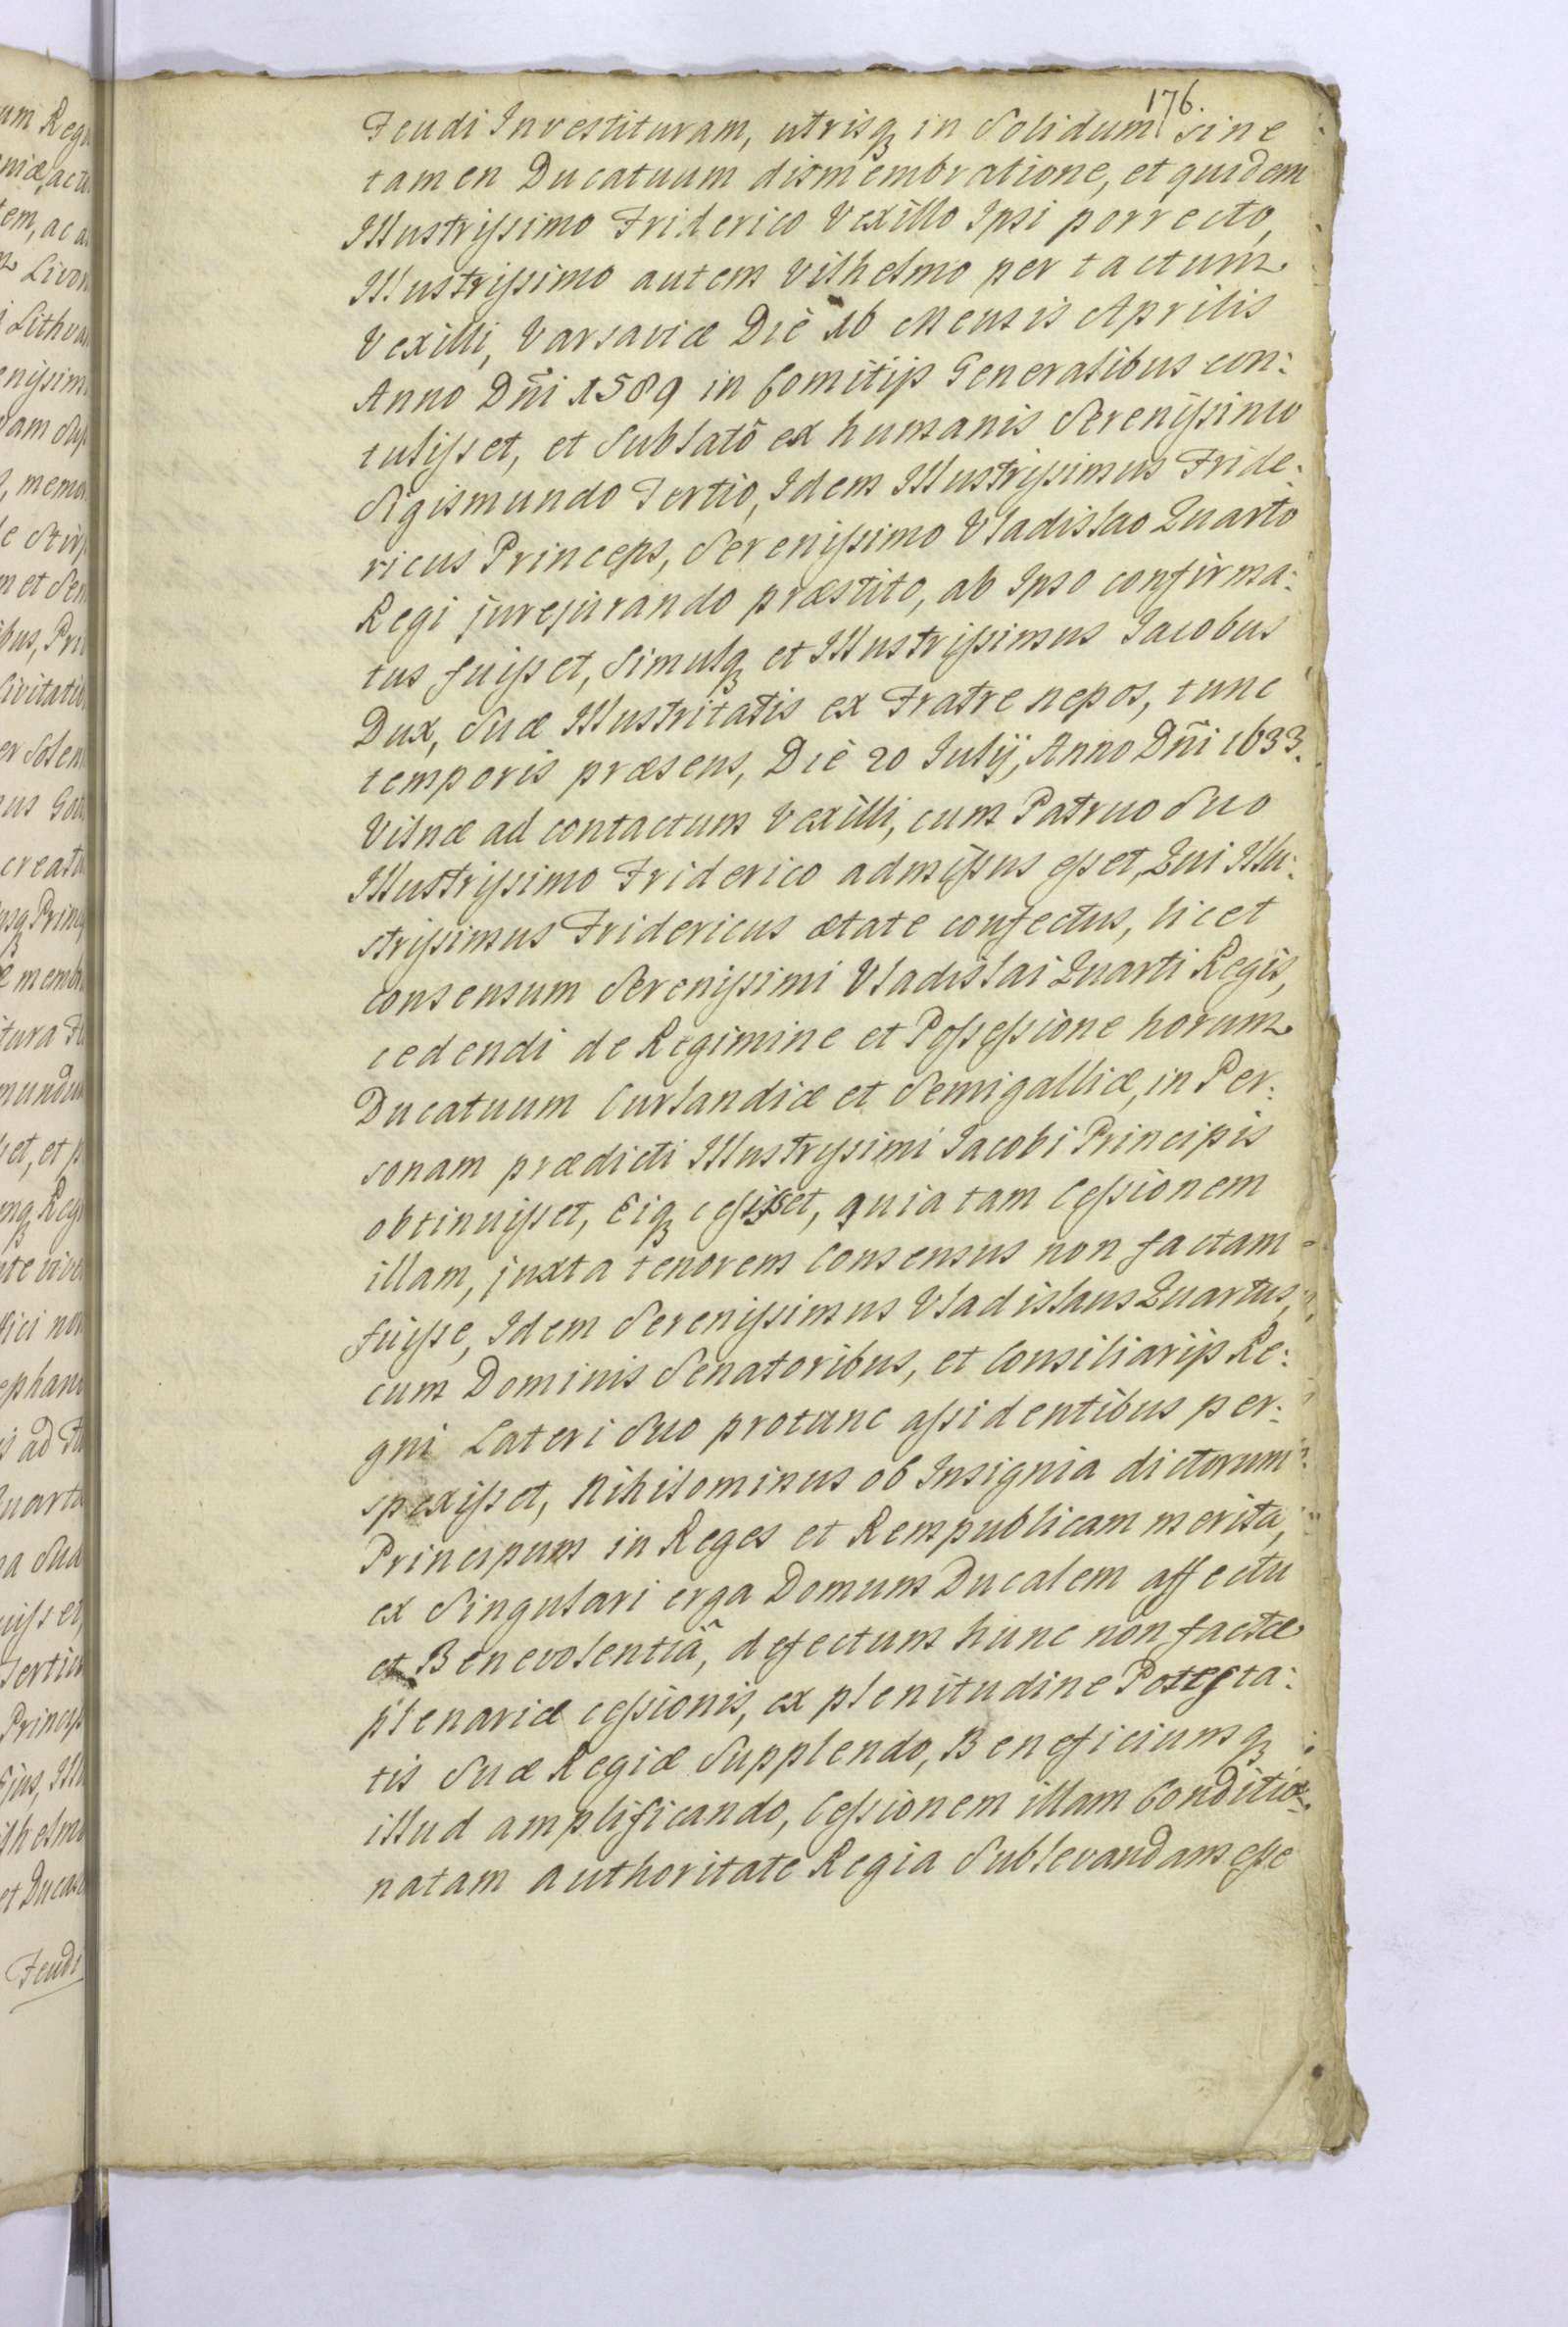 176.
Feudi Investituram, utrisq in Solidum sine
tamen Ducatuum dismembratione, et quidem
Illustrissimo Friderico Vexillo Ipsi porrecto,
Illustrissimo autem Vilhelmo per tactum
Vexilli, Varsaviæ Die 16 Mensis Aprilis
Anno Dñi 1589 in Comitijs Generalibus con:
tulisset, et Sublatô ex humanis Serenissimo
Sigismundo Tertio, Idem Illustrissimus Fride:
ricus Princeps, Serenissimo Vladislao Quarto
Regi jurejurando præstito, ab Ipso confirma:
tus fuisset, Simulq et Illustrissimus Iacobus
Dux, Suæ Illustritatis ex Fratre nepos, tunc
temporis præsens, Die 20 Iulij, Anno Dñi 1633.
Vilnæ ad contactum Vexilli, cum Patruo Suo
Illustrissimo Friderico admissus esset, Qui Illu:
strissimus Fridericus ætate confectus, licet
consensum Serenissimi Vladislai Quarti Regis,
cedendi de Regimine et Possessione horum
Ducatuum Curlandiæ et Semigalliæ, in Per:
sonam prædicti Illustrissimi Iacobi Principis
obtinuisset, Eiq cessisset, quia tam Cessionem
illam, juxta tenorem Consensus non factam
fuisse, Idem Serenissimus Vladislaus Quartus,
cum Dominis Senatoribus, et Consiliarijs Re:
gni Lateri Suo protunc assidentibus per:
spexisset, Nihilominus ob Insignia dictorum
Principum in Reges et Rempublicam merita,
ex Singulari erga Domum Ducalem affectu
et Benevolentiâ, defectum hunc non factæ
plenariæ cessionis, ex plenitudine Potesta:
tis Suæ Regiæ Supplendo, Beneficiumq
illud amplificando, Cessionem illam Conditio:
natam authoritate Regia Sublevandam esse
Feudi